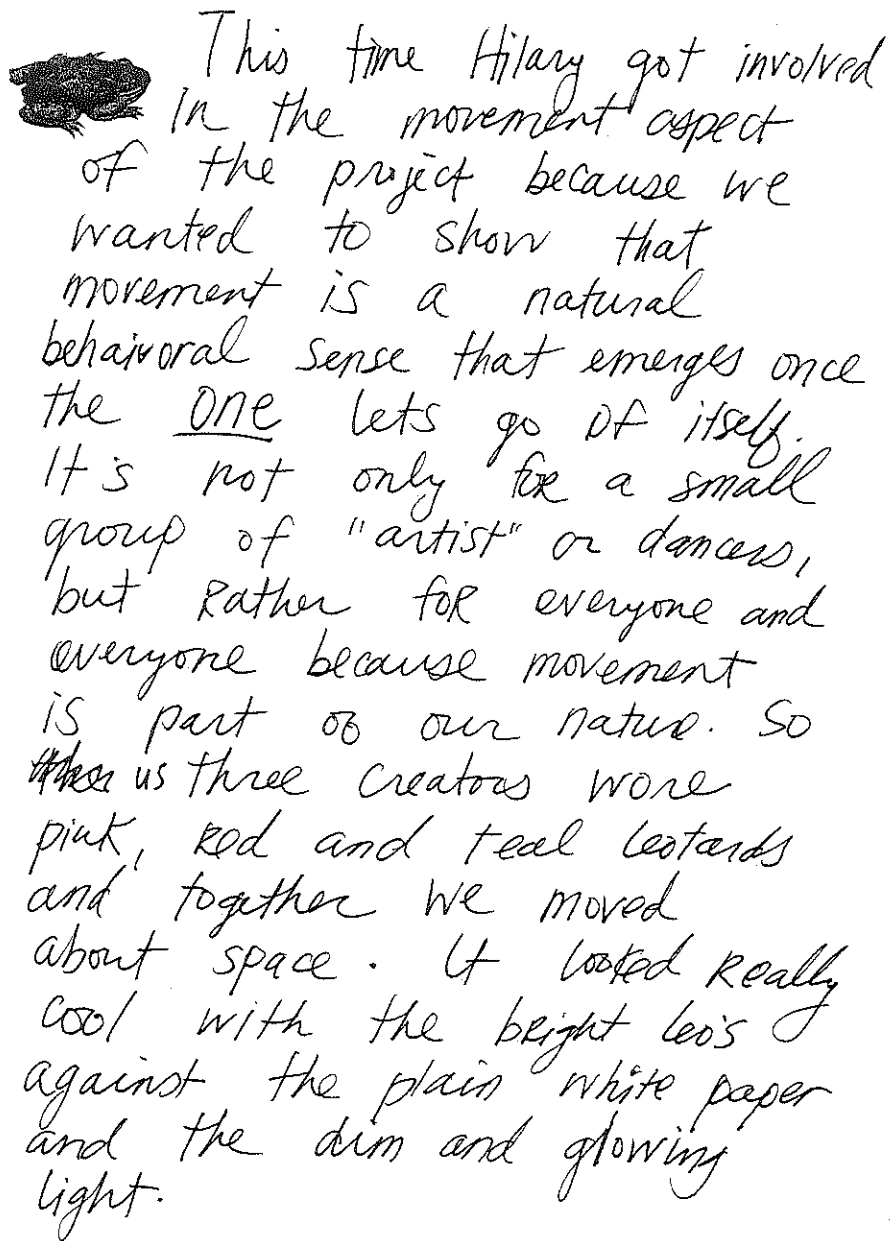 This time Hilary got involved
In the movement aspect
of the project because we
wanted to show that
movement is a natural
behaivoral sense that emerges once
the one lets go of itself.
It's not only for a small
group of "artist" or dancers,
but Rather foR everyone and
everyone because movement
is part of our nature. So
us three creators wore
pink, Red and teal leotards
and together we moved
about space. It looked Really
cool with the bright leo's
against the plain white paper
and the dim and glowing
light.